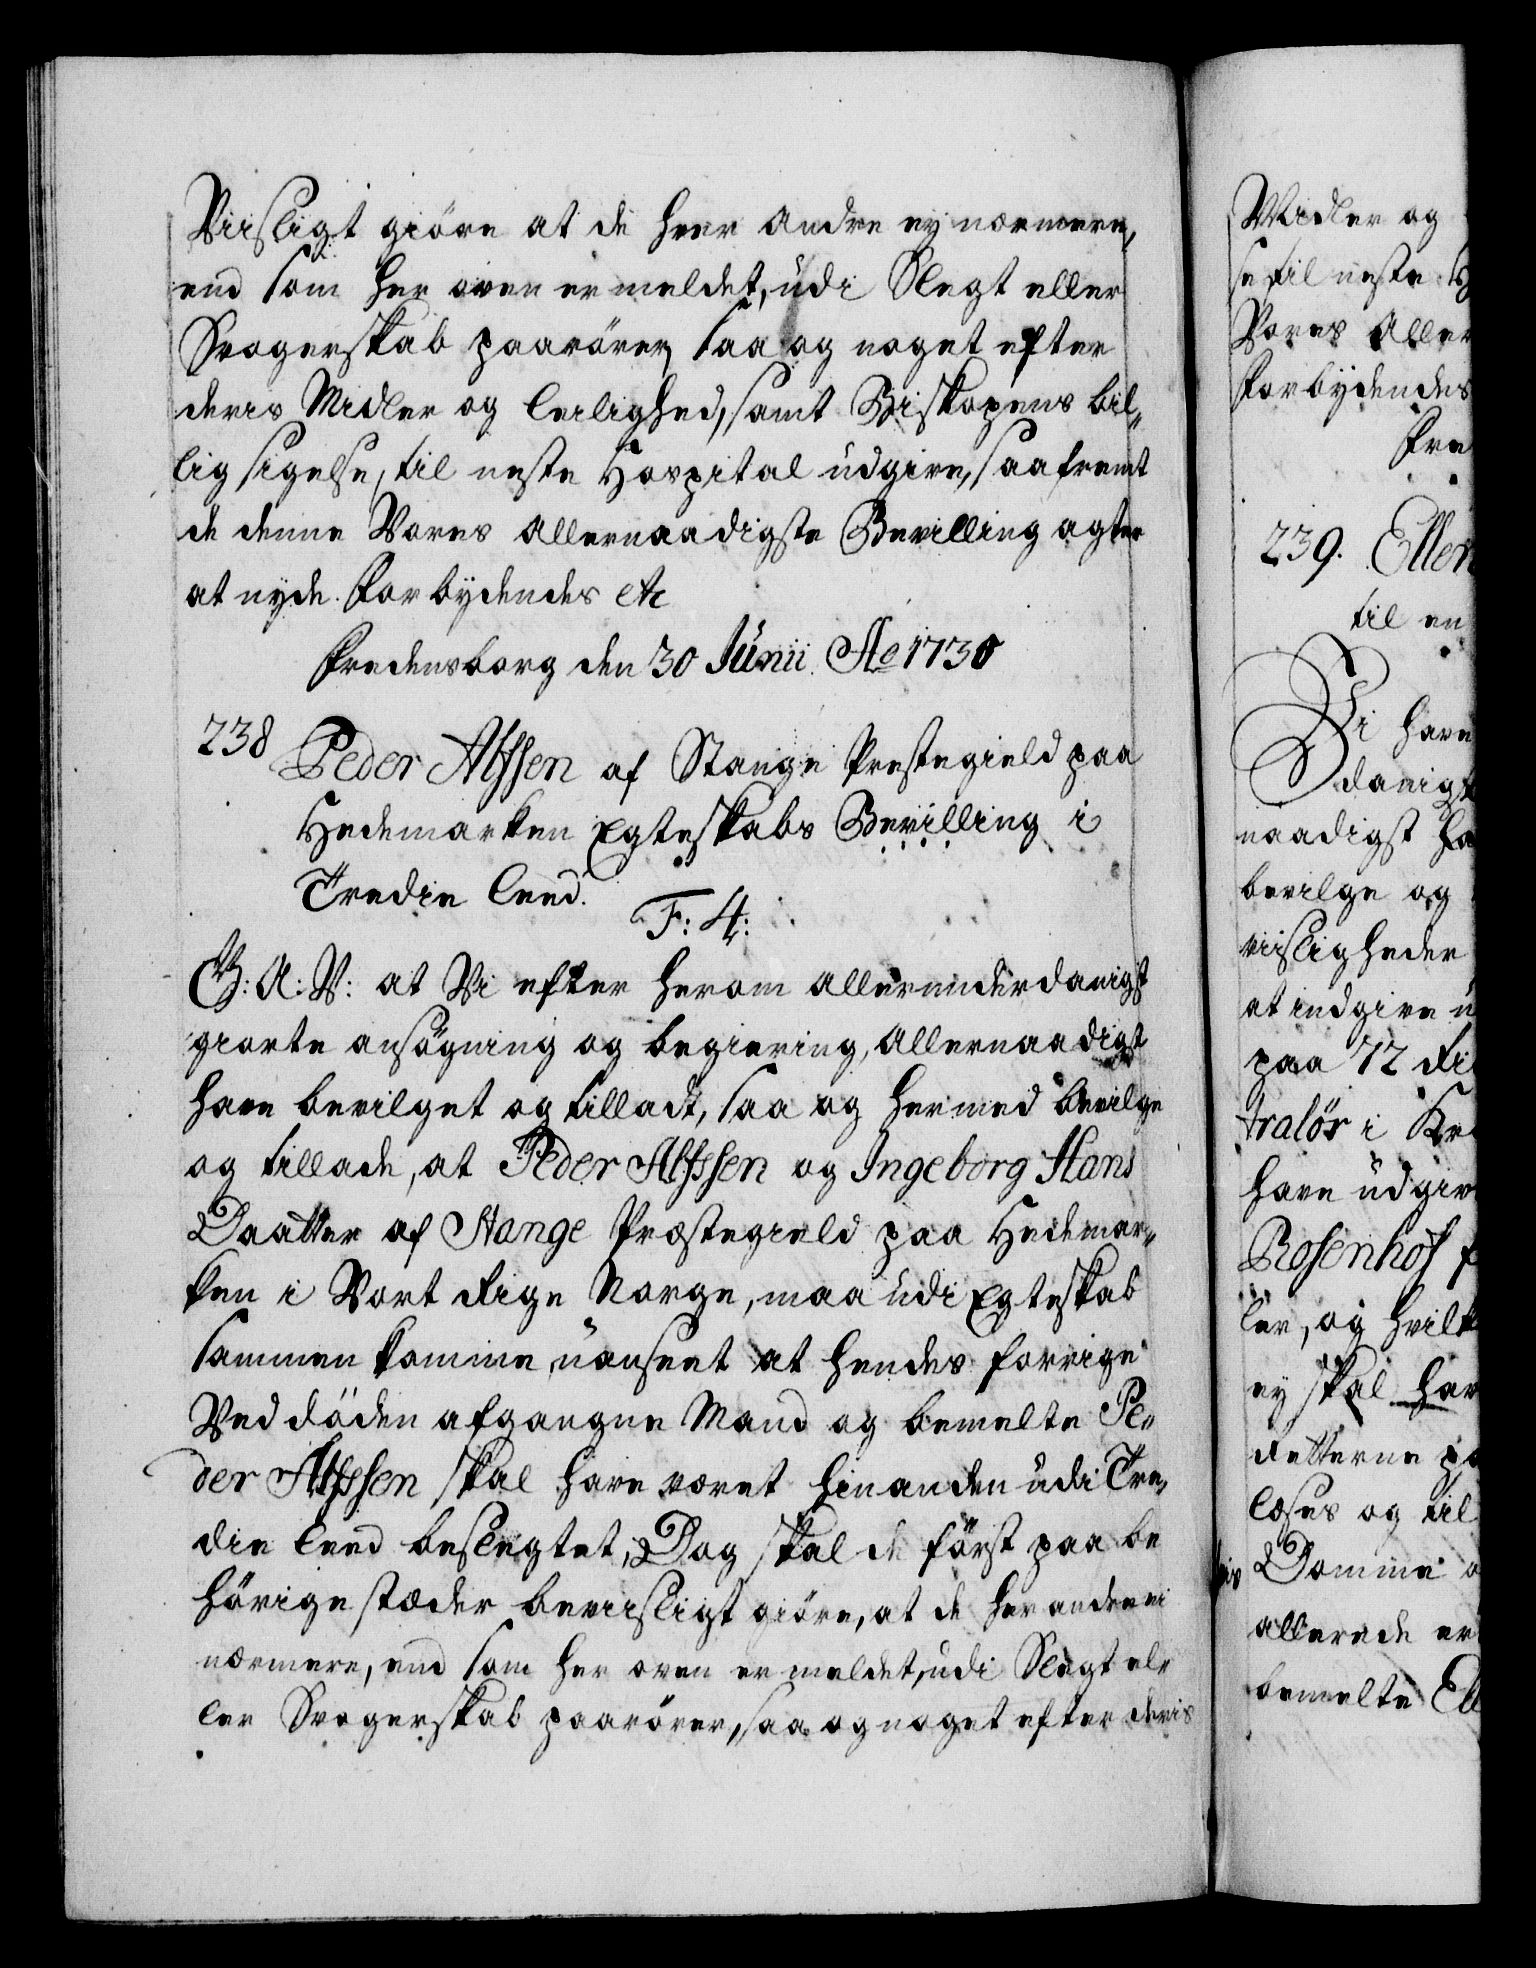 Viisligt giöre at de hver andre ej nærmere,
end som her oven er meldet, udi Slegt eller
Svogerskab paarörer, saa og noget efter
deris Midler og leilighed, samt Biskopens bil-
lig sigelse, til neste Hospital udgive, saafremt
de denne Vores allernaadigste Bevilling agter
at nyde. Forbydendes etc
Fredensborg den 30 Junii Ao 1730
238 Peder Alfssen af Stange Prestegield paa
Hedemarken Egteskabs Bevilling i
Tredie leed.
F: 4:
G: A: V: at Vi efter herom allerunderdanigst
giorte ansögning og begiering, allernaadigst
have bevilget og tilladt, saa og hermed bevilge
og tillade, at Peder Alfssen og Ingeborg Hans
Daatter af Stange Præstegield paa Hedemar-
ken i Vort Rige Norge, maa udi Egteskab
sammen komme, uanseet at hendes forrige
Ved döden afgangne Mand og bemelte Pe-
der Alfssen skal have været hinanden udi Tre-
die leed beslegtet, Dog skal de först paa be
hörige stæder bevisligt giöre, at de hver andre ei
nærmere, end som her oven er meldet, udi Slegt el-
ler Svogerskab paarörer, saa og noget efter deris
Midler og
se til neste
Vores Aller
Forbydendes
Fre
239. Ellen
til en
Vi have
danigst
naadigst ha
bevilge og
viisligheder
at indgive u
paa 72
tralör i Kr
have udgiv
Rosenhof f
ler, og hvilk
ey skal har
Retterne pa
löses og til
Domme o
allerede er
bemelte Ell